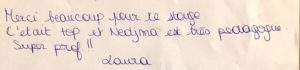 Merci beaucoup pour ce stage
C'était top et Nedjma est très pédagogue.
Super prof !!
Laura